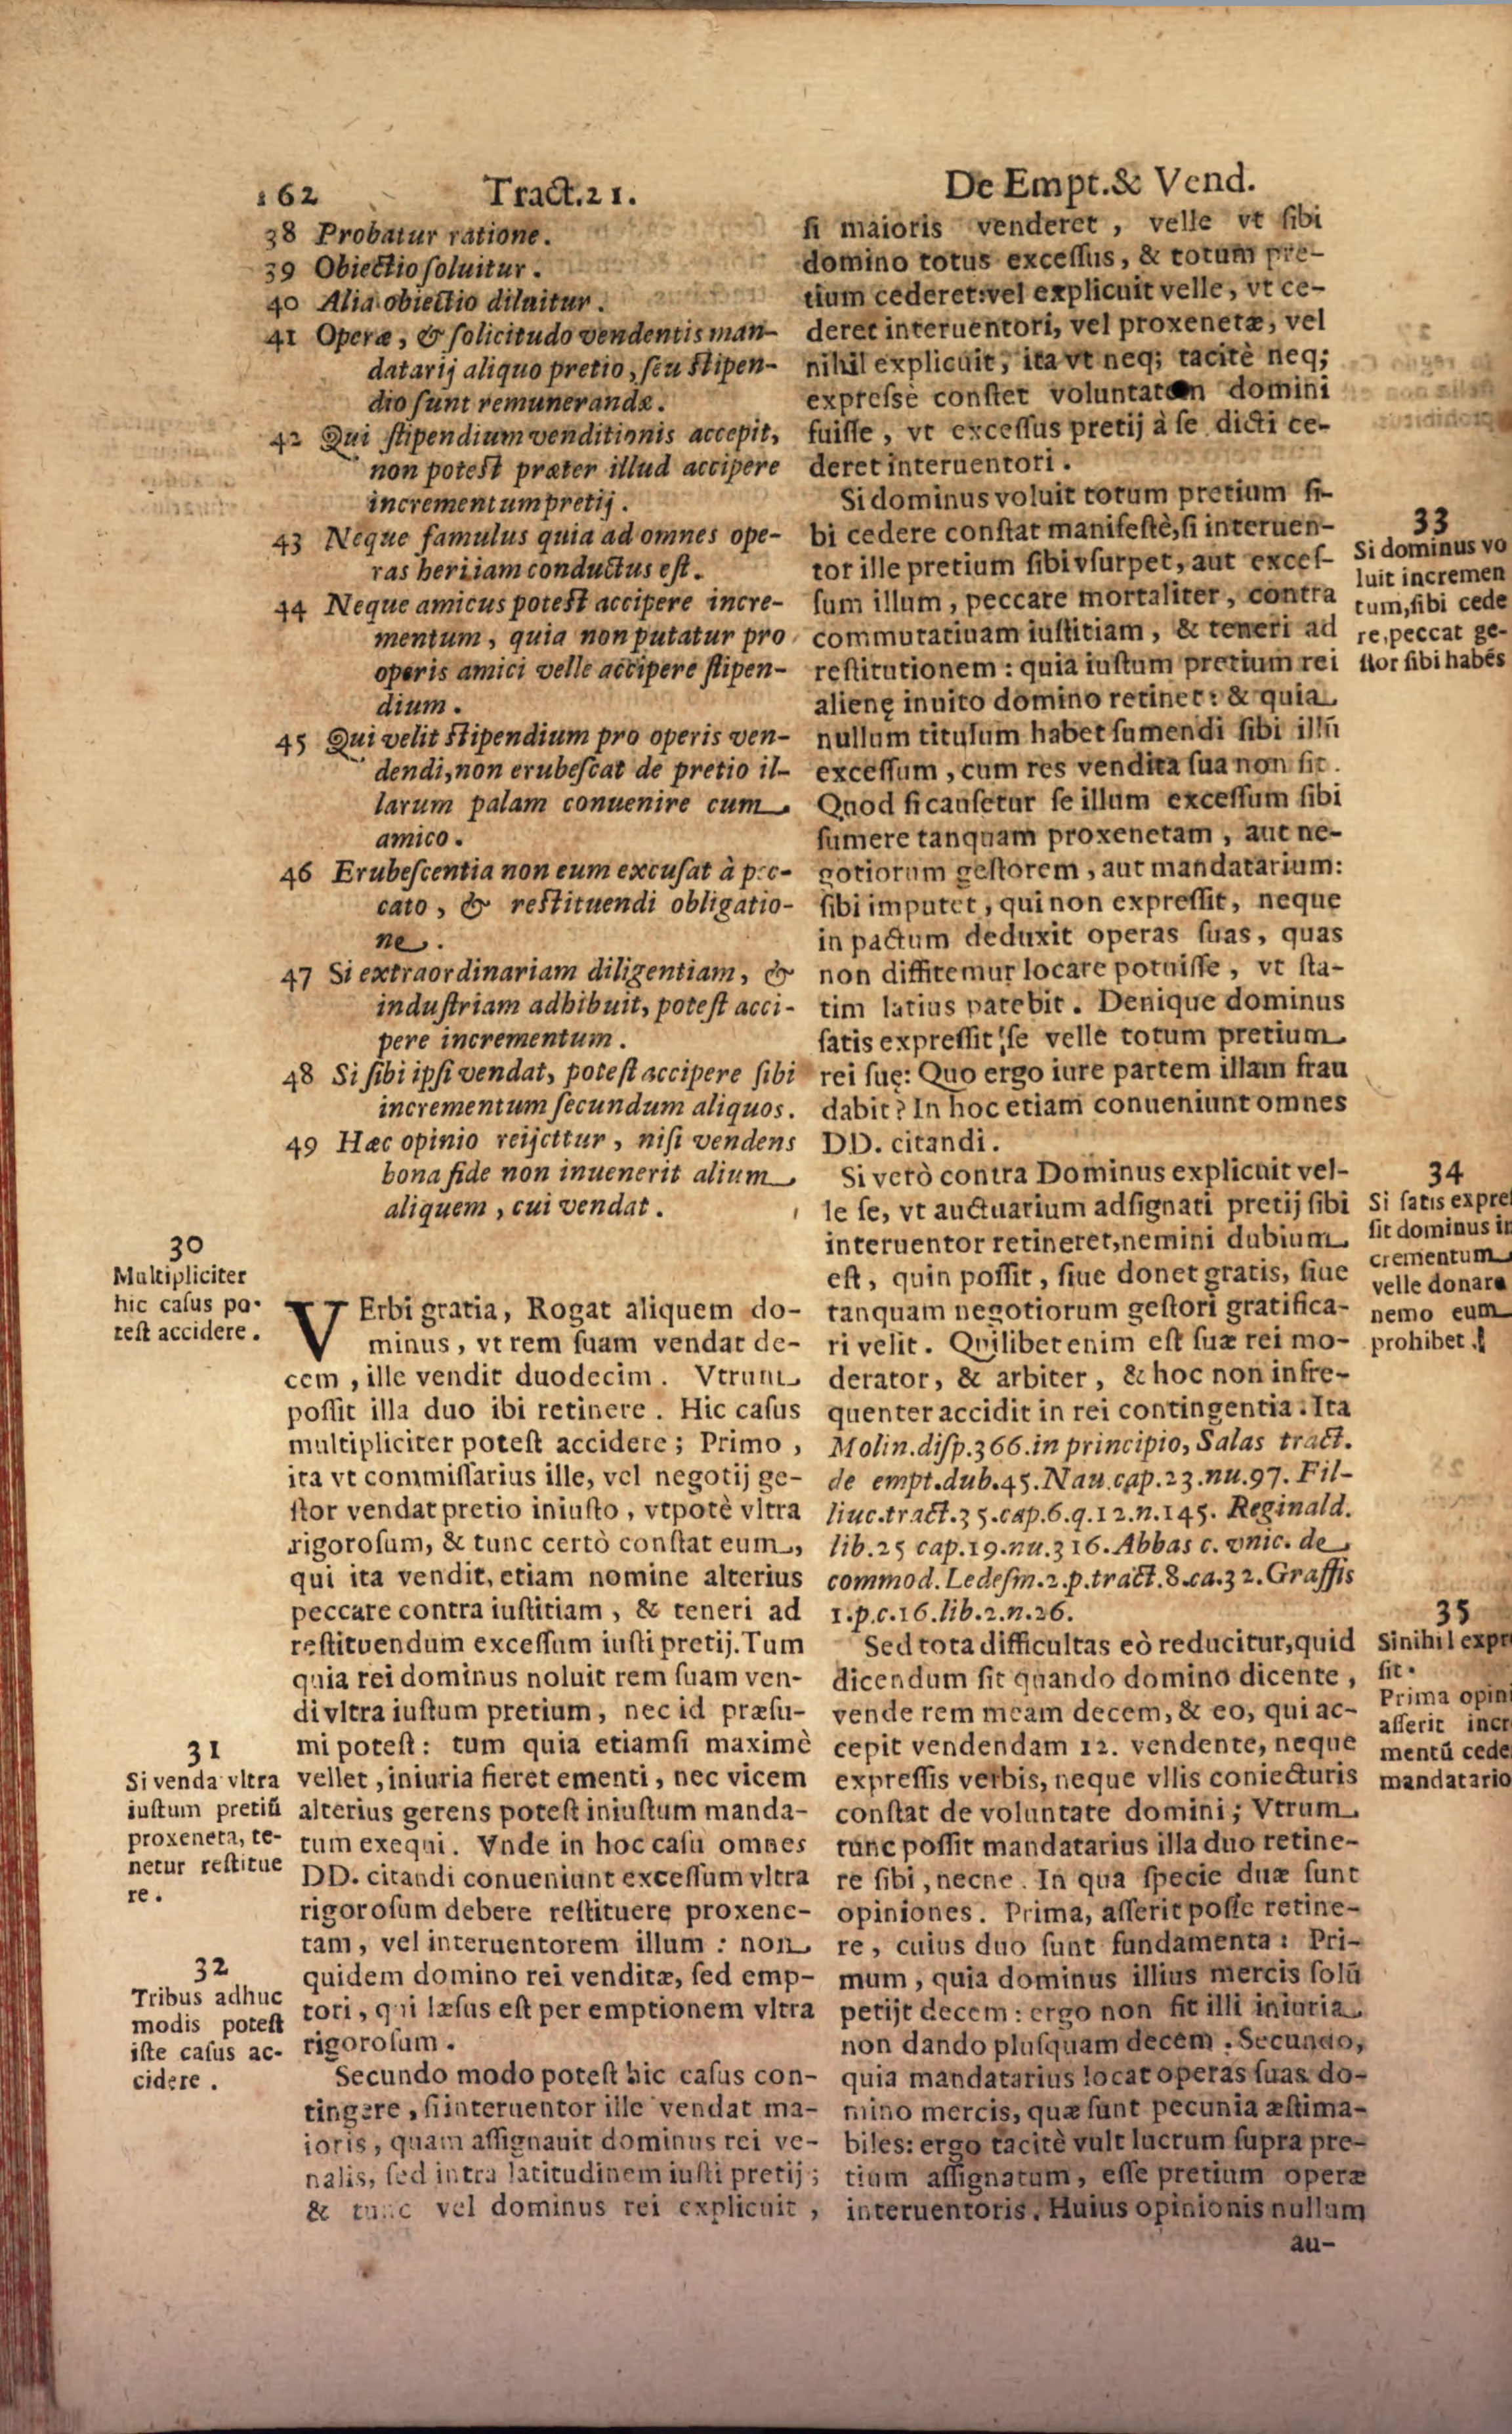 162 Tract.21. De Empt.& Vend.
38 Probatur ratione.
39 Obiectio soluitur.
40 Alia obiectio diluitur.
41 Operæ, & solicitudo vendentis man-
datarij aliquo pretio, seu stipen-
dio sunt remunerandæ.
42 Qui stipendium venditionis accepit,
non potest præter illud accipere
incrementum pretij.
43 Neque famulus quia ad omnes ope-
ras heri iam conductus est.
44 Neque amicus potest accipere incre-
mentum, quia non putatur pro
operis amici velle accipere stipen-
dium.
45 Qui velit stipendium pro operis ven-
dendi, non erubescat de pretio il-
larum palam conuenire cum
amico.
46 Erubescentia non eum excusat à pec-
cato, & restituendi obligatio-
ne.
47 Si extraordinariam diligentiam, &
industriam adhibuit, potest acci-
pere incrementum.
48 Si sibi ipsi vendat, potest accipere sibi
incrementum secundum aliquos.
49 Hæc opinio reijcttur, nisi vendens
bona fide non inuenerit alium
aliquem, cui vendat.
30
Multipliciter
hic casus po-
test accidere.
VErbi gratia, Rogat aliquem do-
minus, vt rem suam vendat de-
cem, ille vendit duodecim. Vtrum
possit illa duo ibi retinere. Hic casus
multipliciter potest accidere; Primo,
ita vt commissarius ille, vel negotij ge-
stor vendat pretio iniusto, vtpotè vltra
rigorosum, & tunc certò constat eum,
qui ita vendit, etiam nomine alterius
peccare contra iustitiam, & teneri ad
restituendum excessum iusti pretij. Tum
quia rei dominus noluit rem suam ven-
di vltra iustum pretium, nec id præsu-
mi potest: tum quia etiamsi maximè
vellet, iniuria fieret ementi, nec vicem
alterius gerens potest iniustum manda-
tum exequi. Vnde in hoc casu omnes
DD. citandi conueniunt excessum vltra
rigorosum debere restituere proxene-
tam, vel interuentorem illum: non
quidem domino rei venditæ, sed emp-
tori, qui læsus est per emptionem vltra
rigorosum.
31
Si venda vltra
iustum pretiũ
proxeneta, te-
netur restitue
re.
32
Tribus adhuc
modis potest
iste casus ac-
cidere.
Secundo modo potest hic casus con-
tingere, si interuentor ille vendat ma-
ioris, quam assignauit dominus rei ve-
nalis, sed intra latitudinem iusti pretij;
& tunc vel dominus rei explicuit,
si maioris venderet, velle vt sibi
domino totus excessus, & totum pre-
tium cederet: vel explicuit velle, vt ce-
deret interuentori, vel proxenetæ, vel
nihil explicuit, ita vt neq; tacitè neq;
expressè constet voluntatem domini
fuisse, vt excessus pretij à se dicti ce-
deret interuentori.
Si dominus voluit totum pretium si-
bi cedere constat manifestè, si interuen-
tor ille pretium sibi vsurpet, aut exces-
sum illum, peccare mortaliter, contra
commutatiuam iustitiam, & teneri ad
restitutionem: quia iustum pretium rei
alienę inuito domino retinet: & quia
nullum titulum habet sumendi sibi illũ
excessum, cum res vendita sua non sit.
Quod si causetur se illum excessum sibi
sumere tanquam proxenetam, aut ne-
gotiorum gestorem, aut mandatarium:
sibi imputet, qui non expressit, neque
in pactum deduxit operas suas, quas
non diffitemur locare potuisse, vt sta-
tim latius patebit. Denique dominus
satis expressit se velle totum pretium
rei suę: Quo ergo iure partem illam frau
dabit? In hoc etiam conueniunt omnes
DD. citandi.
33
Si dominus vo
luit incremen
tum, sibi cede
re, peccat ge-
stor sibi habés
Si verò contra Dominus explicuit vel-
le se, vt auctuarium adsignati pretij sibi
interuentor retineret, nemini dubium
est, quin possit, siue donet gratis, siue
tanquam negotiorum gestori gratifica-
ri velit. Quilibet enim est suæ rei mo-
derator, & arbiter, & hoc non infre-
quenter accidit in rei contingentia. Ita
Molin. disp. 366. in principio, Salas tract.
de empt. dub. 45. Nau. cap. 23. nu. 97. Fil-
liuc. tract. 35. cap. 6. q. 12. n. 145. Reginald.
lib. 25 cap. 19. nu. 316. Abbas c. vnic. de
commod. Ledesm. 2. p. tract. 8. ca. 32. Graffis
1. p. c. 16. lib. 2. n. 26.
34
Si satis expres
sit dominus in
crementum
velle donare
nemo eum
prohibet.
Sed tota difficultas eò reducitur, quid
dicendum sit quando domino dicente,
vende rem meam decem, & eo, qui ac-
cepit vendendam 12. vendente, neque
expressis verbis, neque vllis coniecturis
constat de voluntate domini; Vtrum
tunc possit mandatarius illa duo retine-
re sibi, necne. In qua specie duæ sunt
opiniones. Prima, asserit posse retine-
re, cuius duo sunt fundamenta: Pri-
mum, quia dominus illius mercis solũ
petijt decem: ergo non fit illi iniuria
non dando plusquam decem. Secundo,
quia mandatarius locat operas suas do-
mino mercis, quæ sunt pecunia æstima-
biles: ergo tacitè vult lucrum supra pre-
tium assignatum, esse pretium operæ
interuentoris. Huius opinionis nullum
au-
35
Si nihil expre
sit.
Prima opini
asserit incr
mentũ cede
mandatario